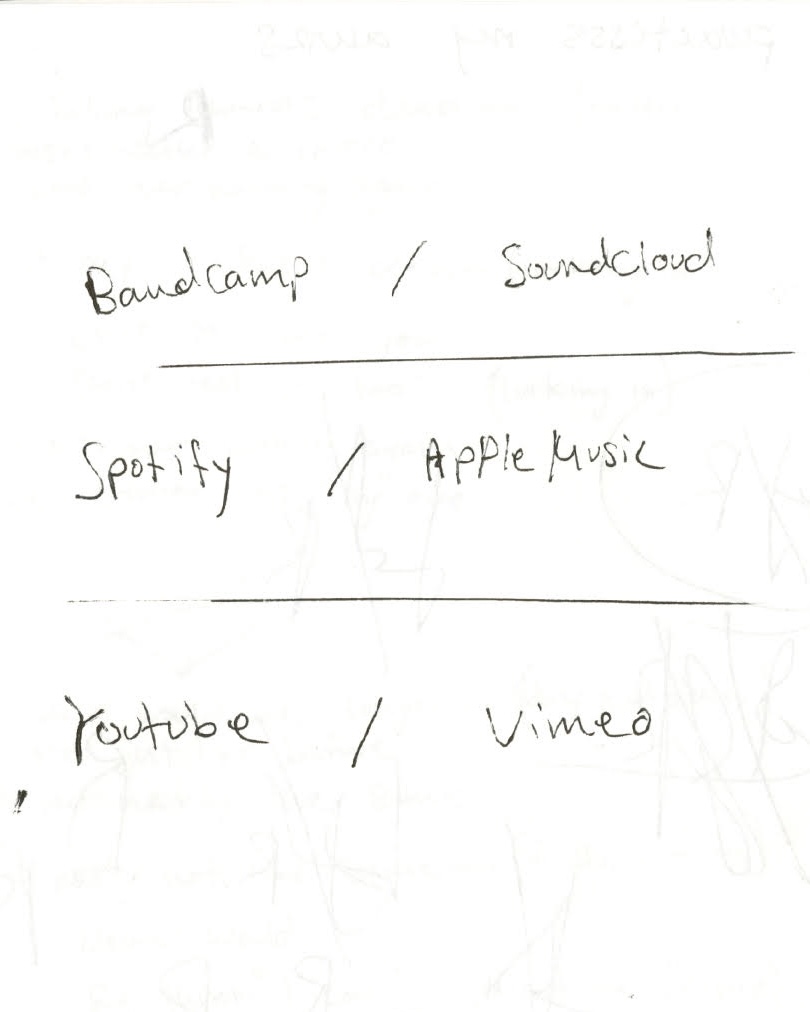 Bandcamp / Soundcloud
Spotify / Apple Music
Youtube / Vimeo